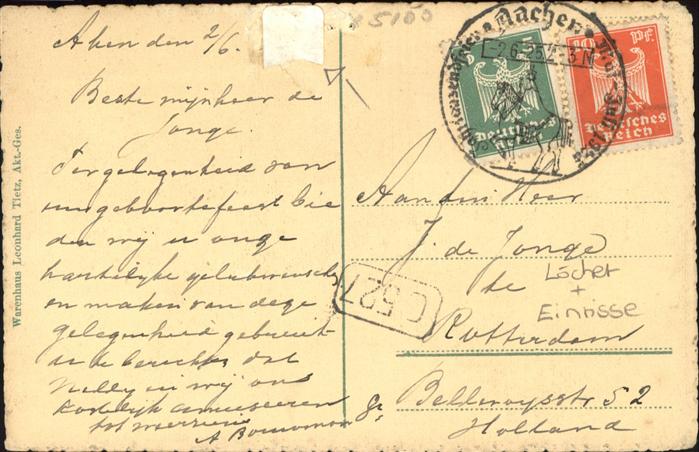 Aken den 2/6.
Beste mijnheer de
Jonge.
Ter gelegenheid van
uw geboortefeest bie
den wij u onze
hartelijke gelukwensche
en maken van deze
gelegenheid gebruik
u te berichten dat
Nelly en wij ons
kostelijk amuseeren
tot weerziens
A Bouwman
Warenhaus Leonhard Tietz, Akt.-Ges.
5100
Aachen
-2.6.25.2-3N
5
Deutsches
10 Pf.
Deutsches
Reich
Aan den Heer
J. de Jonge
te
Rotterdam
Bellevoysstr 52
Holland
Löcher
+
Einrisse
C 527